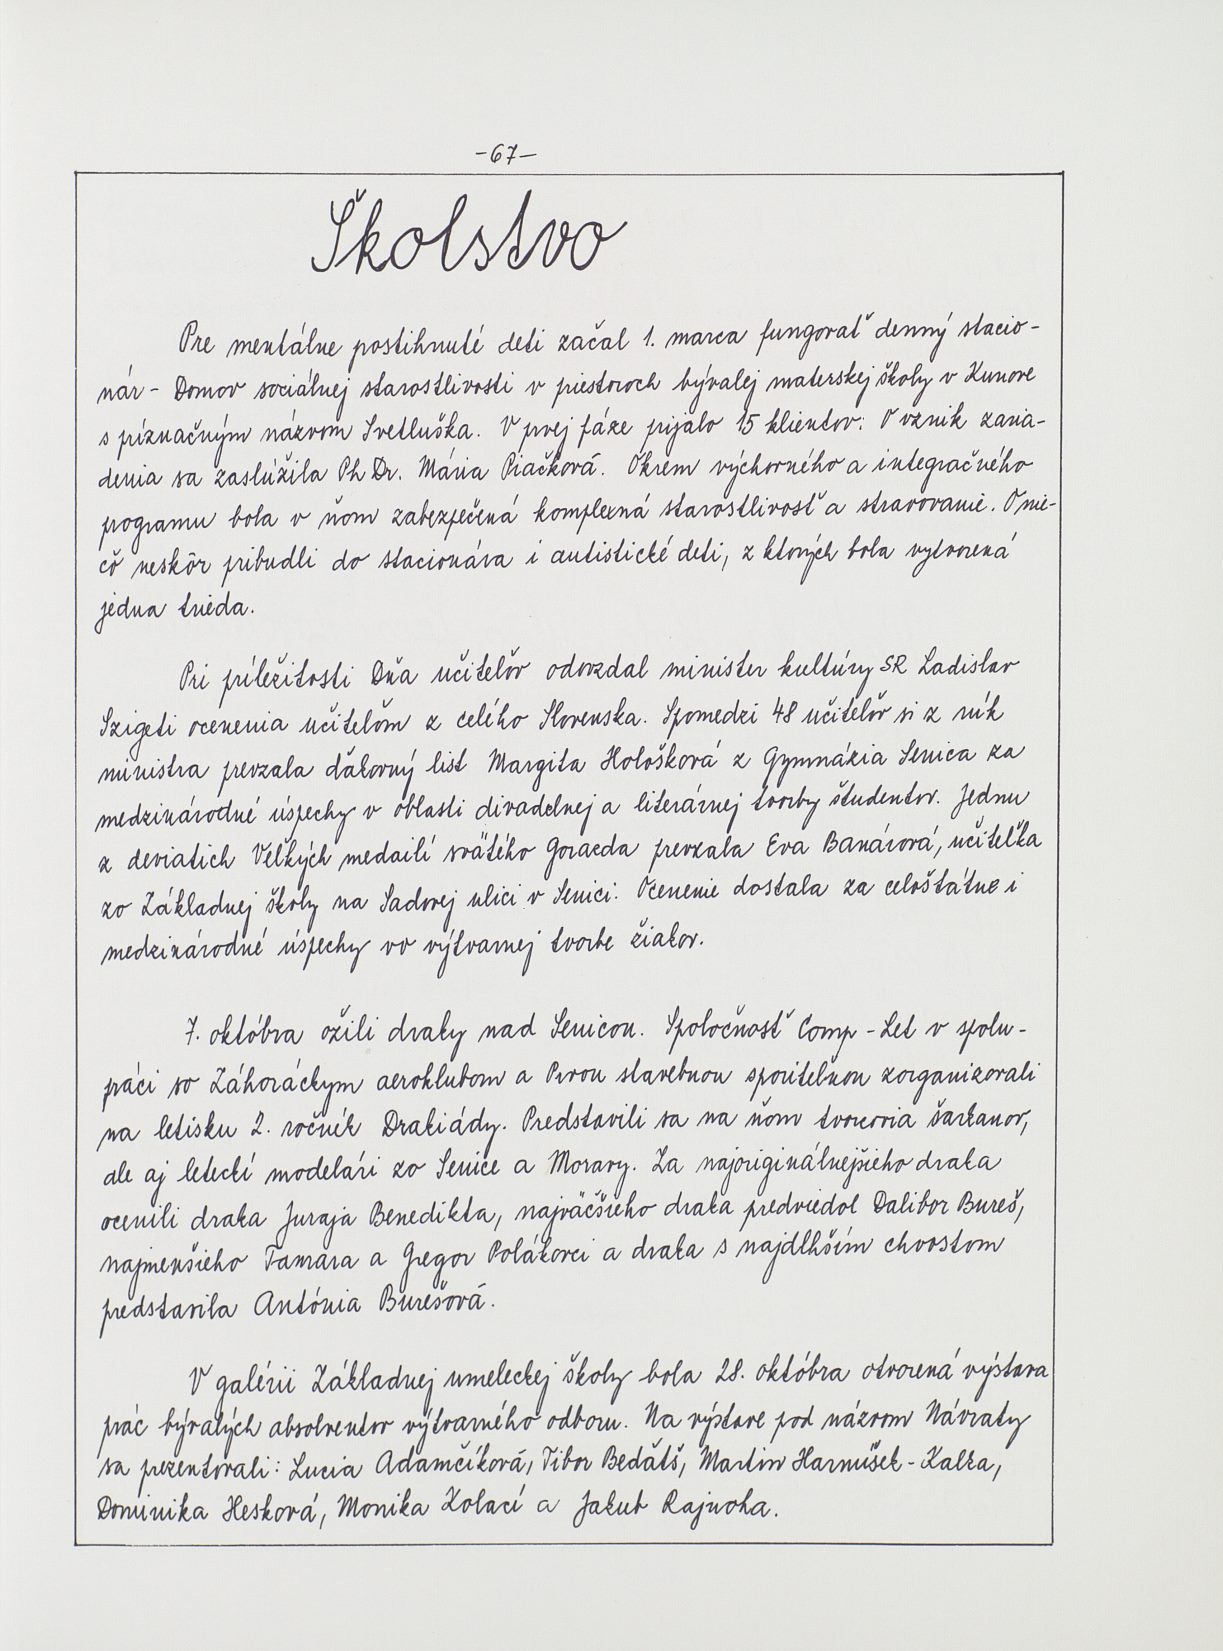 -67-
Školstvo
Pre mentálne postihnuté deti začal 1. marca fungovať denný stacio-
nár - Domov sociálnej starostlivosti v priestoroch bývalej materskej školy v Kunove
s príznačným názvom Svetluška. V prvej fáze prijalo 15 klientov. O vznik zaria-
denia sa zaslúžila PhDr. Mária Piačková. Okrem výchovného a integračného
programu bola v ňom zabezpečená komplexná starostlivosť a stravovanie. O nie-
čo neskôr pribudli do stacionára i autistické deti, z ktorých bola vytvorená
jedna trieda.
Pri príležitosti Dňa učiteľov odovzdal minister kultúry SR Ladislav
Szigeti ocenenia učiteľom z celého Slovenska. Spomedzi 48 učiteľov si z rúk
ministra prevzala ďakovný list Margita Hološková z Gymnázia Senica za
medzinárodné úspechy v oblasti divadelnej a literárnej tvorby študentov. Jednu
z deviatich Veľkých medailí svätého Gorazda prevzala Eva Banárová, učiteľka
zo Základnej školy na Sadovej ulici v Senici. Ocenenie dostala za celoštátne i
medzinárodné úspechy vo výtvarnej tvorbe žiakov.
7. októbra ožili draky nad Senicou. Spoločnosť Comp - Let v spolu-
práci so Záhoráckym aeroklubom a Prvou stavebnou sporiteľnou zorganizovali
na letisku 2. ročník Drakiády. Predstavili sa na ňom tvorcovia šarkanov,
ale aj leteckí modelári zo Senice a Moravy. Za najoriginálnejšieho draka
ocenili draka Juraja Benedikta, najväčšieho draka predviedol Dalibor Bureš,
najmenšieho Tamara a Gregor Polákovci a draka s najdlhším chvostom
predstavila Antónia Burešová.
V galérii Základnej umeleckej školy bola 28. októbra otvorená výstava
prác bývalých absolventov výtvarného odboru. Na výstave pod názvom Návraty
sa prezentovali: Lucia Adamčíková, Tibor Bedáts, Martin Harnúšek - Kalka,
Dominika Hesková, Monika Kolací a Jakub Rajnoha.